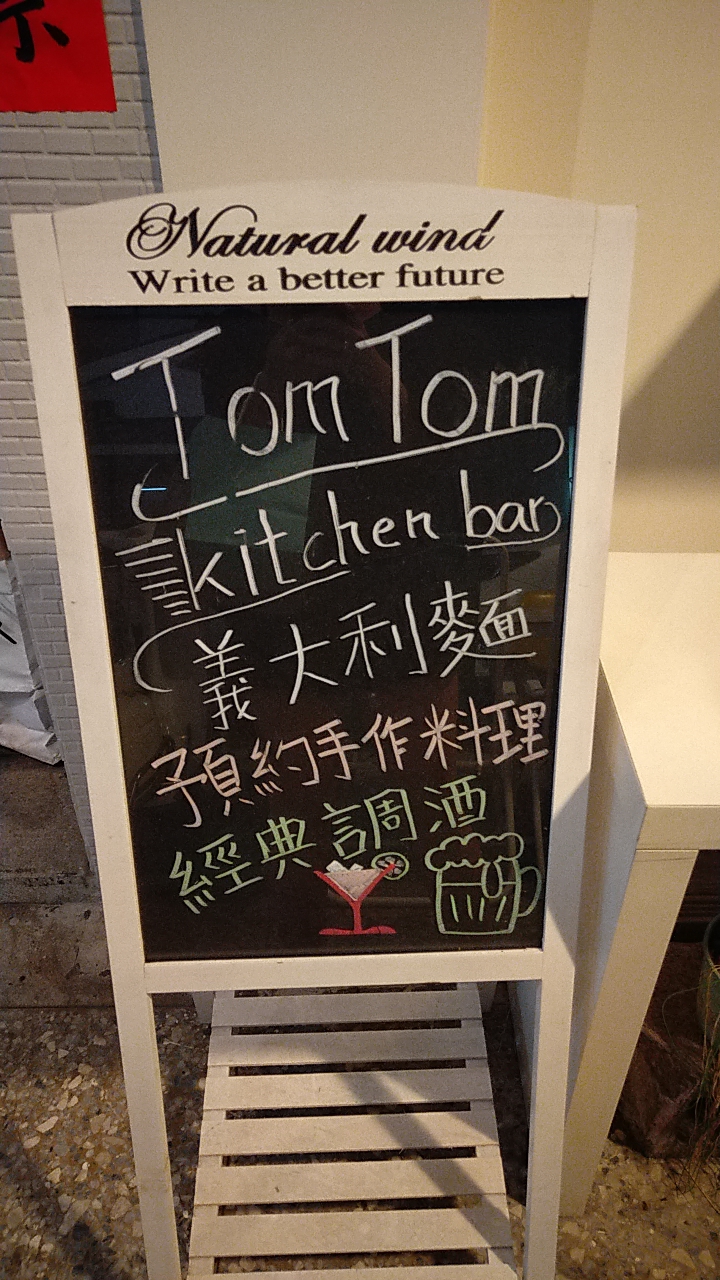 Natural wind
Write a better future
Tom Tom
kitchen bar
義大利麵
預約手作料理
經典調酒